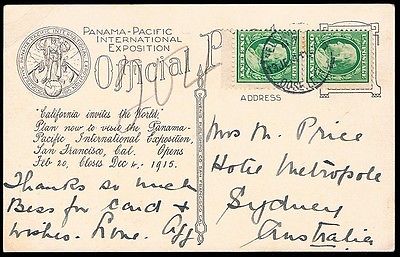 Panama-Pacific
International
Exposition
Official P
"California invites the World.
Plan now to visit the Panama-
Pacific International Exposition,
San Francisco, Cal. Opens
Feb. 20, Closes Dec 4, 1915.
Thanks so much
Bess for card &
wishes. Love. Agg
ADDRESS
Mrs M. Price
Hotel Metropole
Sydney
Australia